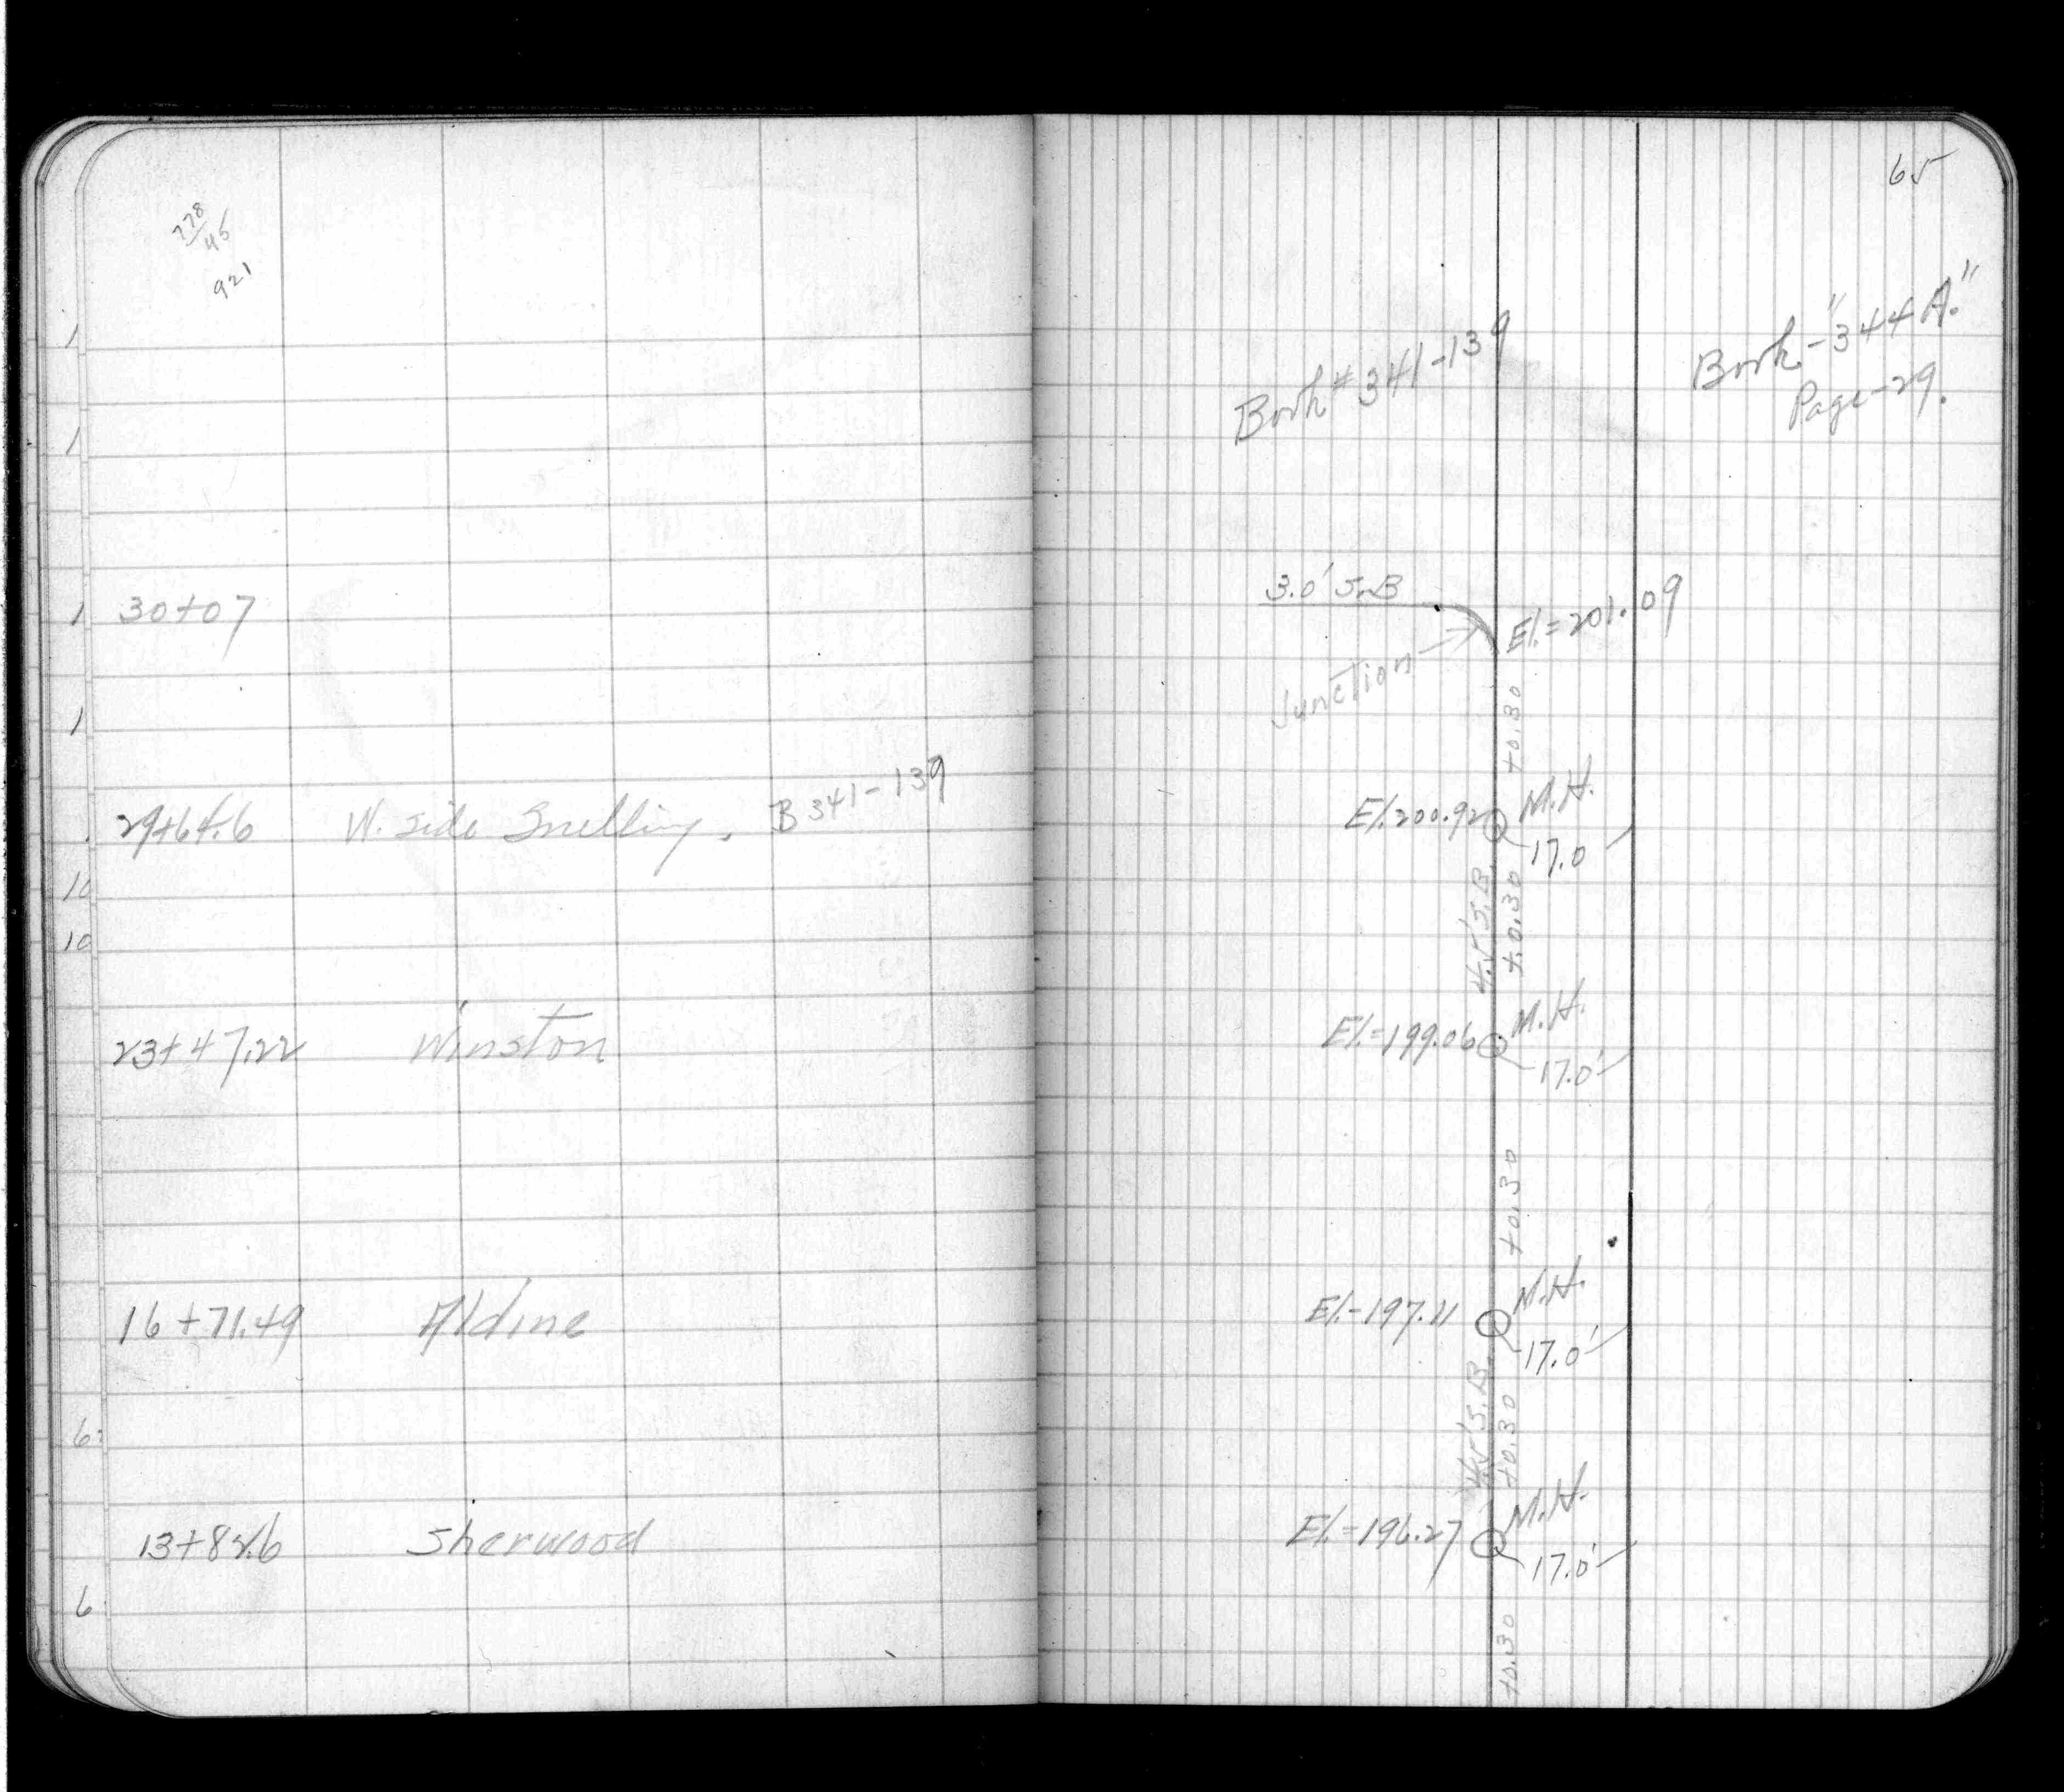 65
778
45
921
Book # 341-139
Book - "344 A."
Page - 29.
30+07
3.0' S.B
El. = 201.09
Junction
+0.30
29+64.6 W. side Snelling. B 341-139
El. 200.92 M.H.
17.0
4.5' S.B.
+0.30
23+47.22 Winston
El. = 199.06 M.H.
17.0'
+0.30
16+71.49 Aldine
El. - 197.11 M.H.
17.0'
4.5' S.B.
+0.30
13+82.6 Sherwood
El. = 196.27 M.H.
17.0'
+0.30